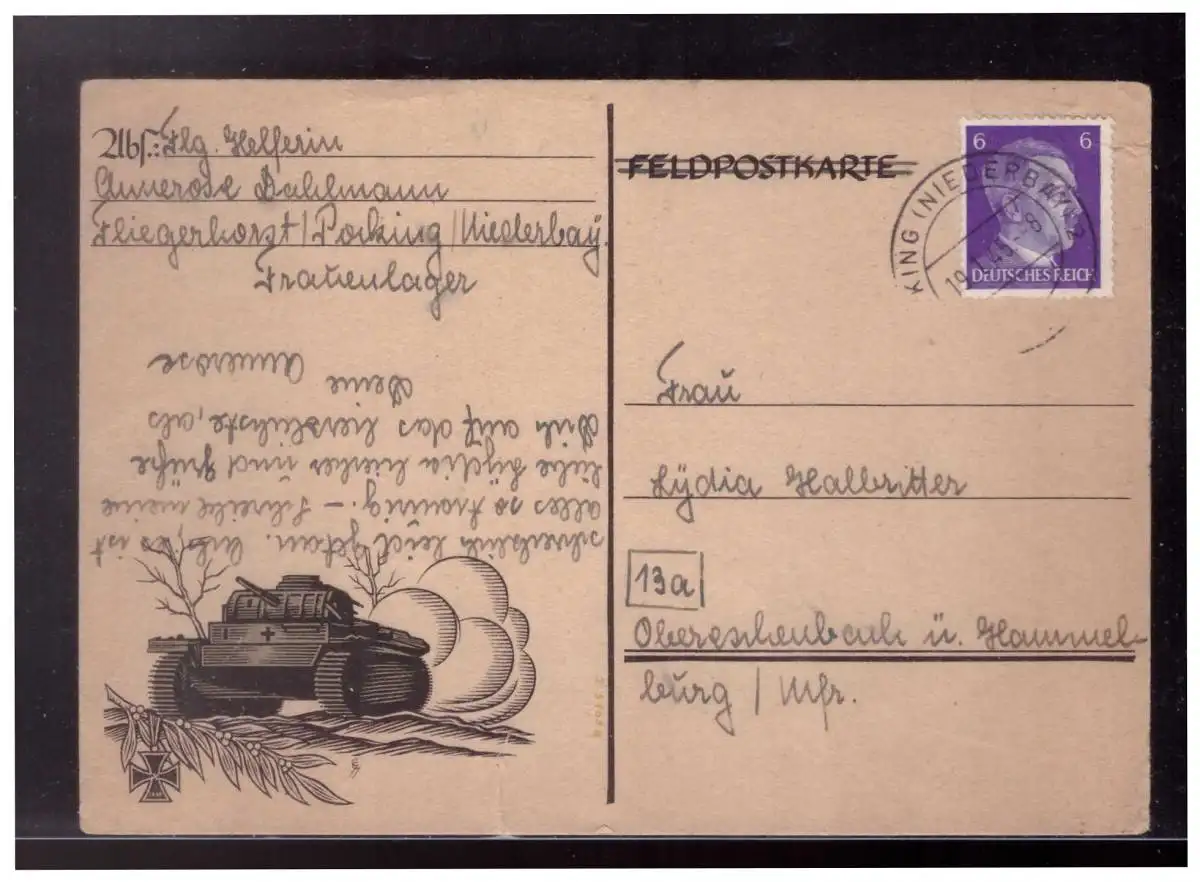 Abs.: Flg. Helferin
Annerose Dahlmann
Fliegerhorst / Pocking / Niederbay.
Frauenlager
schrecklich leid getan. es ist
alles so traurig. – Schreibe meine
liebe Lydia wieder und grüße
Dich auf das herzlichste, als
Deine
Annerose
FELDPOSTKARTE
6 6
DEUTSCHES REICH
KING (NIEDERBAY
Frau
Lydia Halbritter
13a
Obereschenbach ü. Hammel-
burg / Mfr.